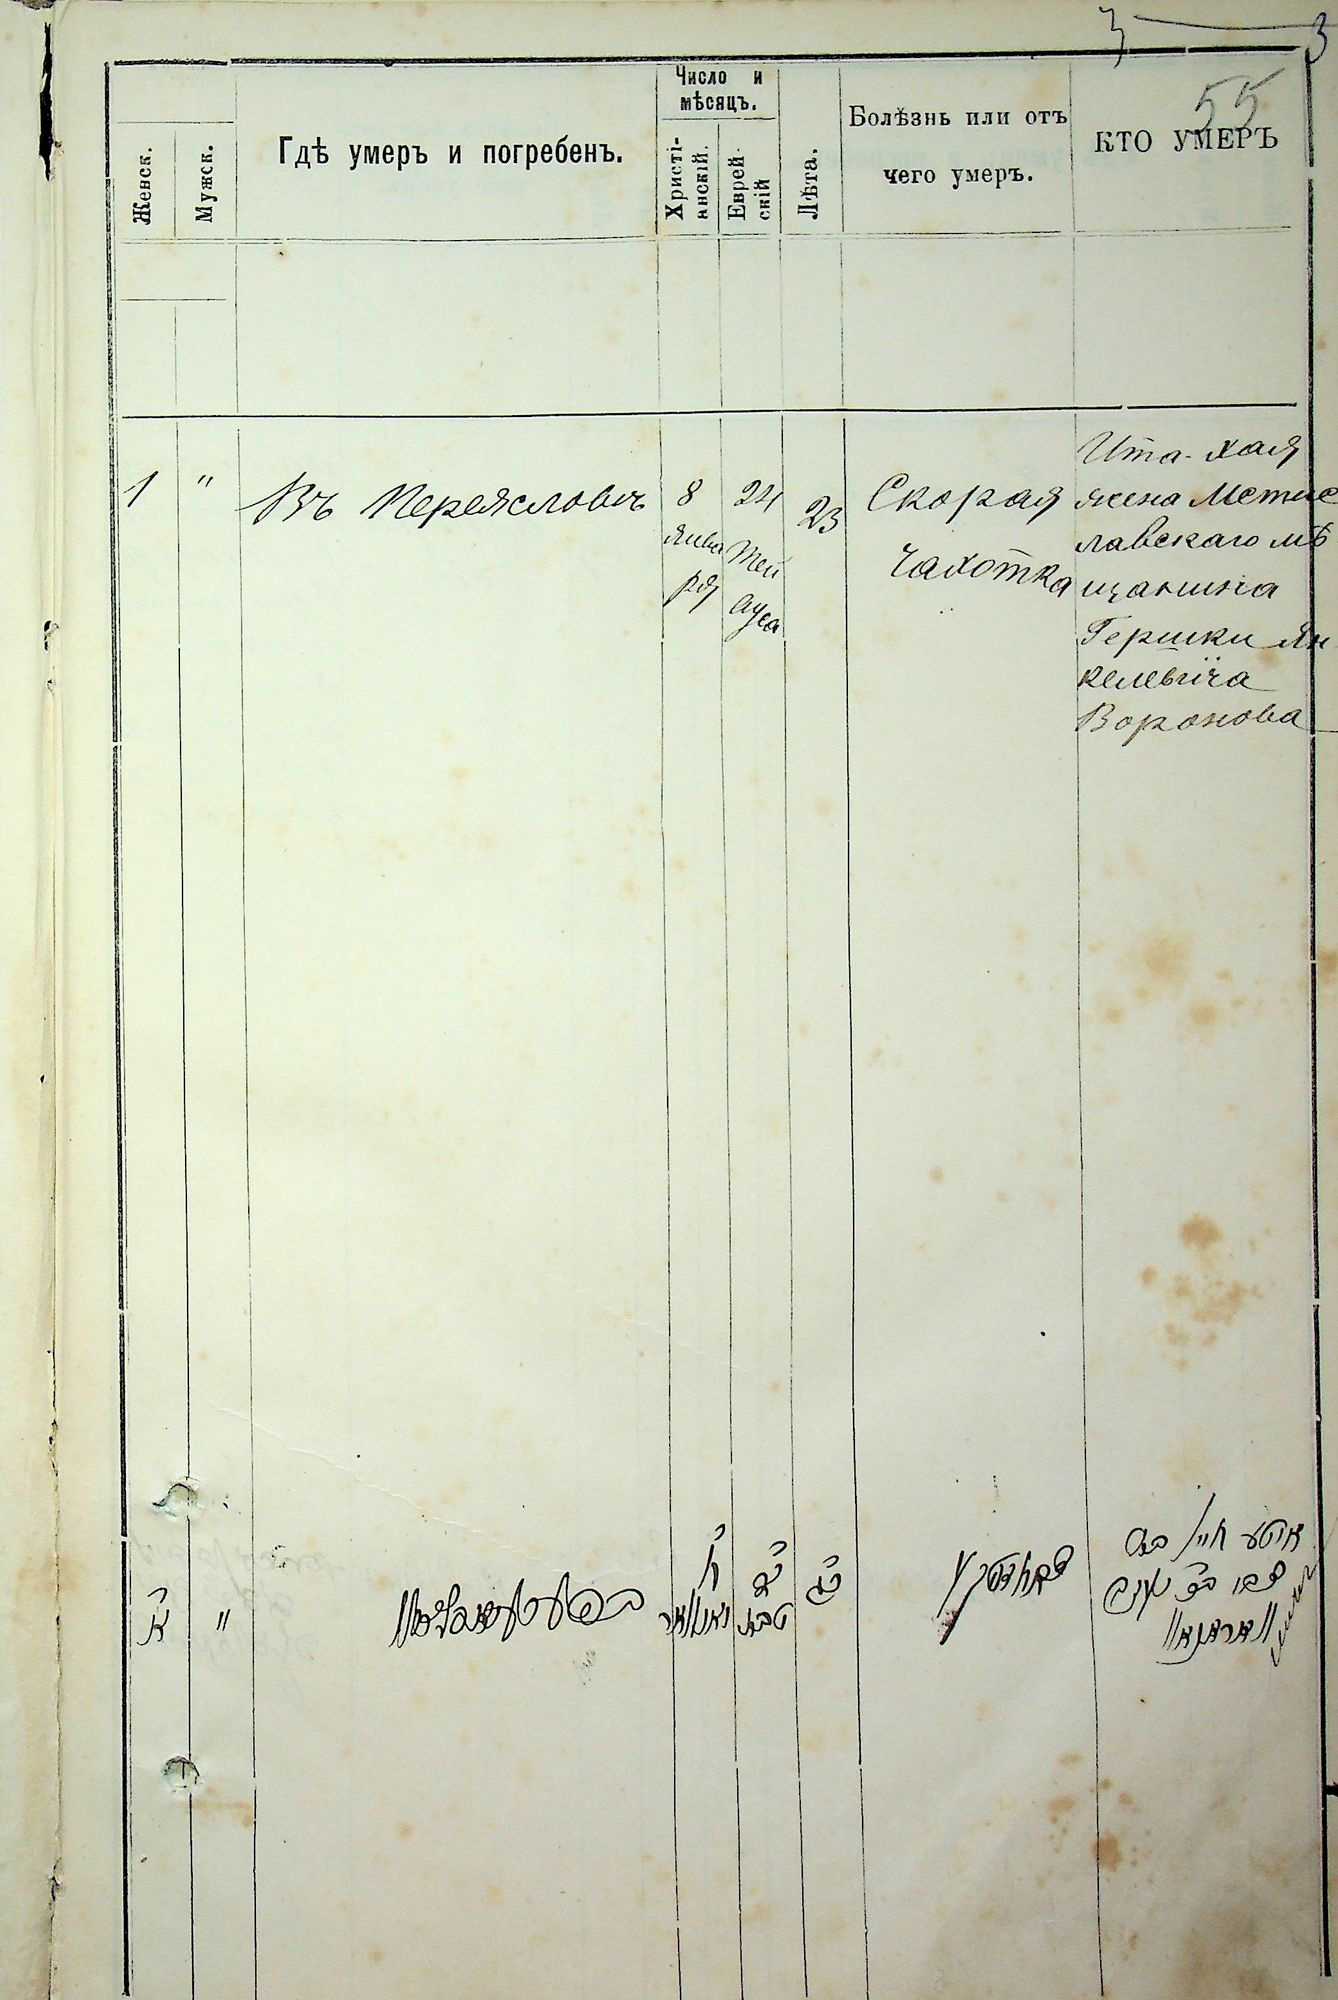 3 3
55
Женск.
Мужск.
Гдѣ умеръ и погребенъ.
Число и
мѣсяцъ.
Христі-
анскій.
Еврей-
скій
Лѣта.
Болѣзнь или отъ
чего умеръ.
КТО УМЕРЪ
1
"
Въ Переяслови
8
янва
ря
24
23
Скорая
Чахотка
Ита-Хая
жена Мстис
лавскаго мѣ
щанина
Гершки Ян
келевича
Воронова
א
"
ח
יאנוואר
כד
טבת
כג
איטע חיי׳
צבי
וואראנאוו